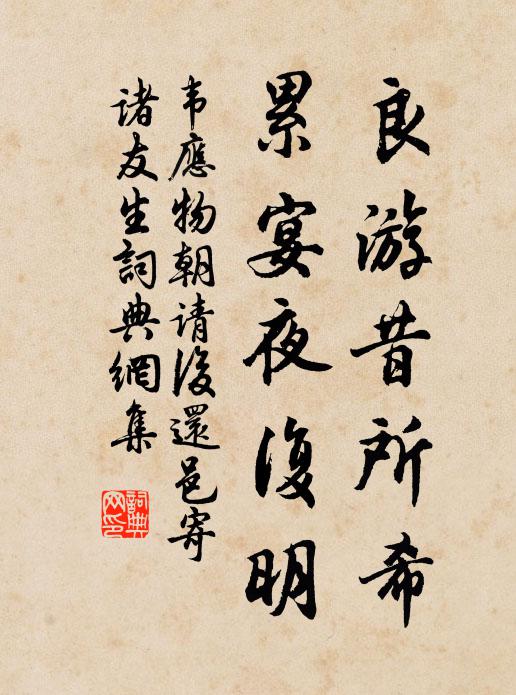 良游昔所希
累宴夜復明
韦應物朝请後還邑寄
诸友生詞典網集
詞典
网印